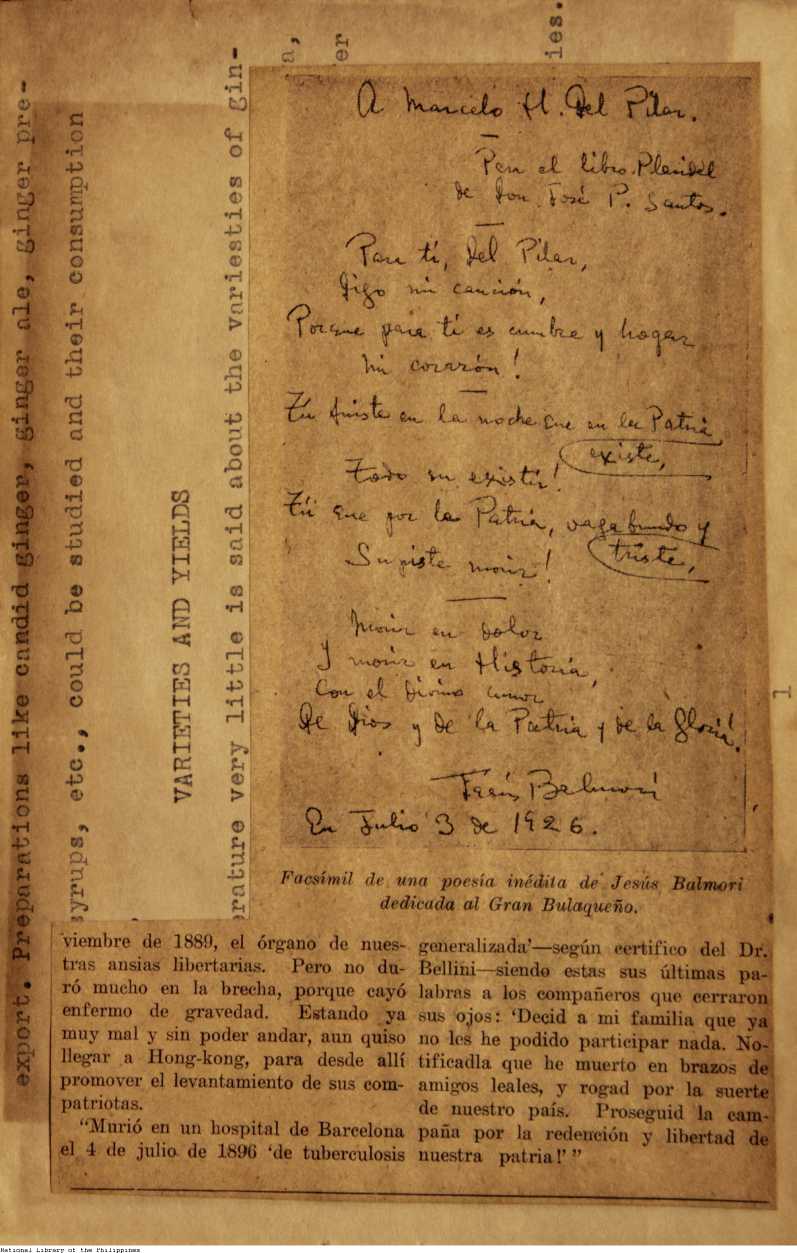 A Marcelo H. Del Pilar.
Para el libro Plaridel
de Don José P. Santos.
Para ti, Del Pilar,
digo mi canción,
Porque para tí es cumbre y hogar
mi corazón!
Tú fuiste en la noche que en la Patria
existe,
Todo un existir!
Tú que por la Patria, vagabundo y
triste,
Supiste morir!
Morir en dolor
Y morir en Historia,
Con el Divino amor
De Dios y de la Patria y de la gloria!
Jesús Balmori
En Julio 3 de 1926.
Facsímil de una poesía inédita de Jesús Balmori
dedicada al Gran Bulaqueño.
viembre de 1889, el órgano de nues-
tras ansias libertarias. Pero no du-
ró mucho en la brecha, porque cayó
enfermo de gravedad. Estando ya
muy mal y sin poder andar, aun quiso
llegar a Hong-kong, para desde allí
promover el levantamiento de sus com-
patriotas.
"Murió en un hospital de Barcelona
el 4 de julio de 1896 'de tuberculosis
generalizada'—según certifico del Dr.
Bellini—siendo estas sus últimas pa-
labras a los compañeros que cerraron
sus ojos: 'Decid a mi familia que ya
no les he podido participar nada. No-
tificadla que he muerto en brazos de
amigos leales, y rogad por la suerte
de nuestro país. Proseguid la cam-
paña por la redención y libertad de
nuestra patria!' "
export. Preparations like candid ginger, ginger ale, ginger pre-
syrups, etc., could be studied and their consumption
VARIETIES AND YIELDS
erature very little is said about the variesties of gin-
National Library of the Philippines